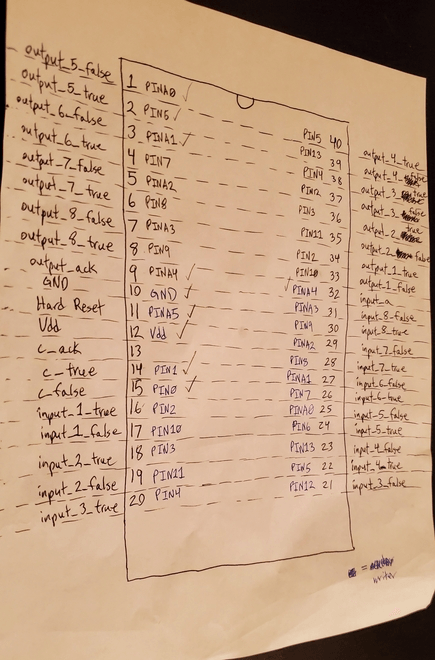 output_5_false
output_5_true
output_6_false
output_6_true
output_7_false
output_7_true
output_8_false
output_8_true
output_ack
GND
Hard Reset
Vdd
c_ack
c_true
c_false
input_1_true
input_1_false
input_2_true
input_2_false
input_3_true
1 PINA0 ✓
2 PIN5 ✓
3 PINA1 ✓
4 PIN7
5 PINA2
6 PIN8
7 PINA3
8 PIN9
9 PINA4 ✓
10 GND ✓
11 PINA5 ✓
12 Vdd ✓
13
14 PIN1 ✓
15 PIN0 ✓
16 PIN2
17 PIN10
18 PIN3
19 PIN11
20 PIN4
PIN5 40
PIN13 39
PIN4 38
PIN12 37
PIN3 36
PIN11 35
PIN2 34
PIN10 33
✓ PINA4 32
PINA3 31
PIN9 30
PINA2 29
PIN8 28
PINA1 27
PIN7 26
PINA0 25
PIN6 24
PIN13 23
PIN5 22
PIN12 21
output_4_true
output_4_false
output_3_true
output_3_false
output_2_true
output_2_false
output_1_true
output_1_false
input_a
input_8_false
input_8_true
input_7_false
input_7_true
input_6_false
input_6_true
input_5_false
input_5_true
input_4_false
input_4_true
input_3_false
=
writer